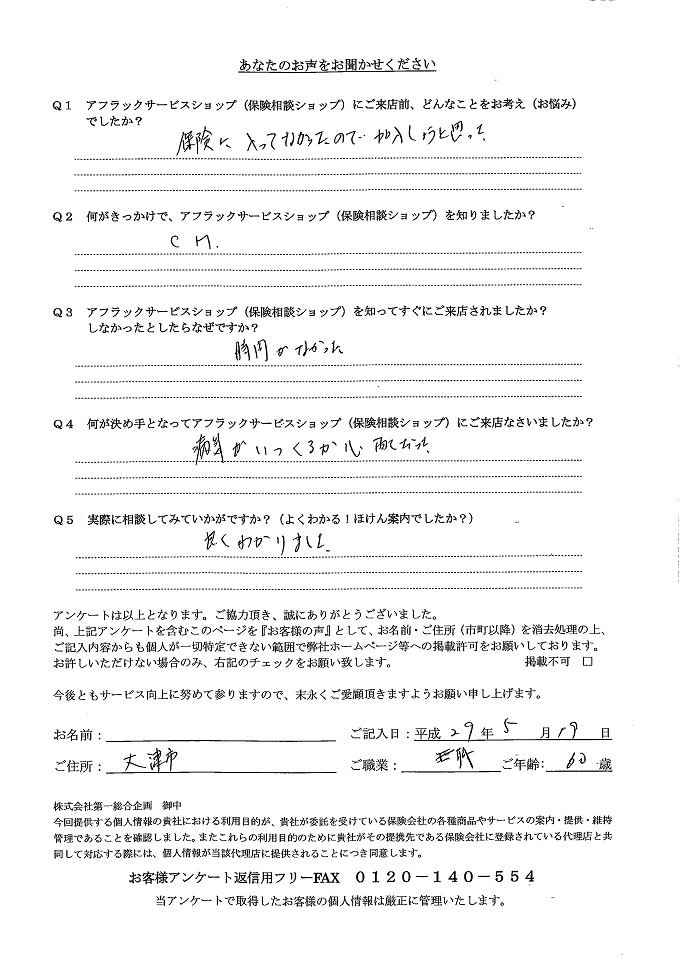 あなたのお声をお聞かせください
Q1 アフラックサービスショップ(保険相談ショップ)にご来店前、どんなことをお考え(お悩み)
でしたか?
保険に入ってなかったので加入しようと思った
Q2 何がきっかけで、アフラックサービスショップ(保険相談ショップ)を知りましたか?
CM.
Q3 アフラックサービスショップ(保険相談ショップ)を知ってすぐにご来店されましたか?
しなかったとしたらなぜですか?
時間がなかった
Q4 何が決め手となってアフラックサービスショップ(保険相談ショップ)にご来店なさいましたか?
病気がいつくるか心配だった
Q5 実際に相談してみていかがですか?(よくわかる!ほけん案内でしたか?)
良くわかりました
アンケートは以上となります。ご協力頂き、誠にありがとうございました。
尚、上記アンケートを含むこのページを『お客様の声』として、お名前・ご住所(市町以降)を消去処理の上、
ご記入内容からも個人が一切特定できない範囲で弊社ホームページ等への掲載許可をお願いしております。
お許しいただけない場合のみ、右記のチェックをお願い致します。 掲載不可 □
今後ともサービス向上に努めて参りますので、末永くご愛顧頂きますようお願い申し上げます。
お名前: ご記入日:平成 29 年 5 月 19 日
ご住所: 大津市 ご職業: 無職 ご年齢: 60 歳
株式会社第一総合企画 御中
今回提供する個人情報の貴社における利用目的が、貴社が委託を受けている保険会社の各種商品やサービスの案内・提供・維持
管理であることを確認しました。またこれらの利用目的のために貴社がその提携先である保険会社に登録されている代理店と共
同して対応する際には、個人情報が当該代理店に提供されることにつき同意します。
お客様アンケート返信用フリーFAX 0120-140-554
当アンケートで取得したお客様の個人情報は厳正に管理いたします。